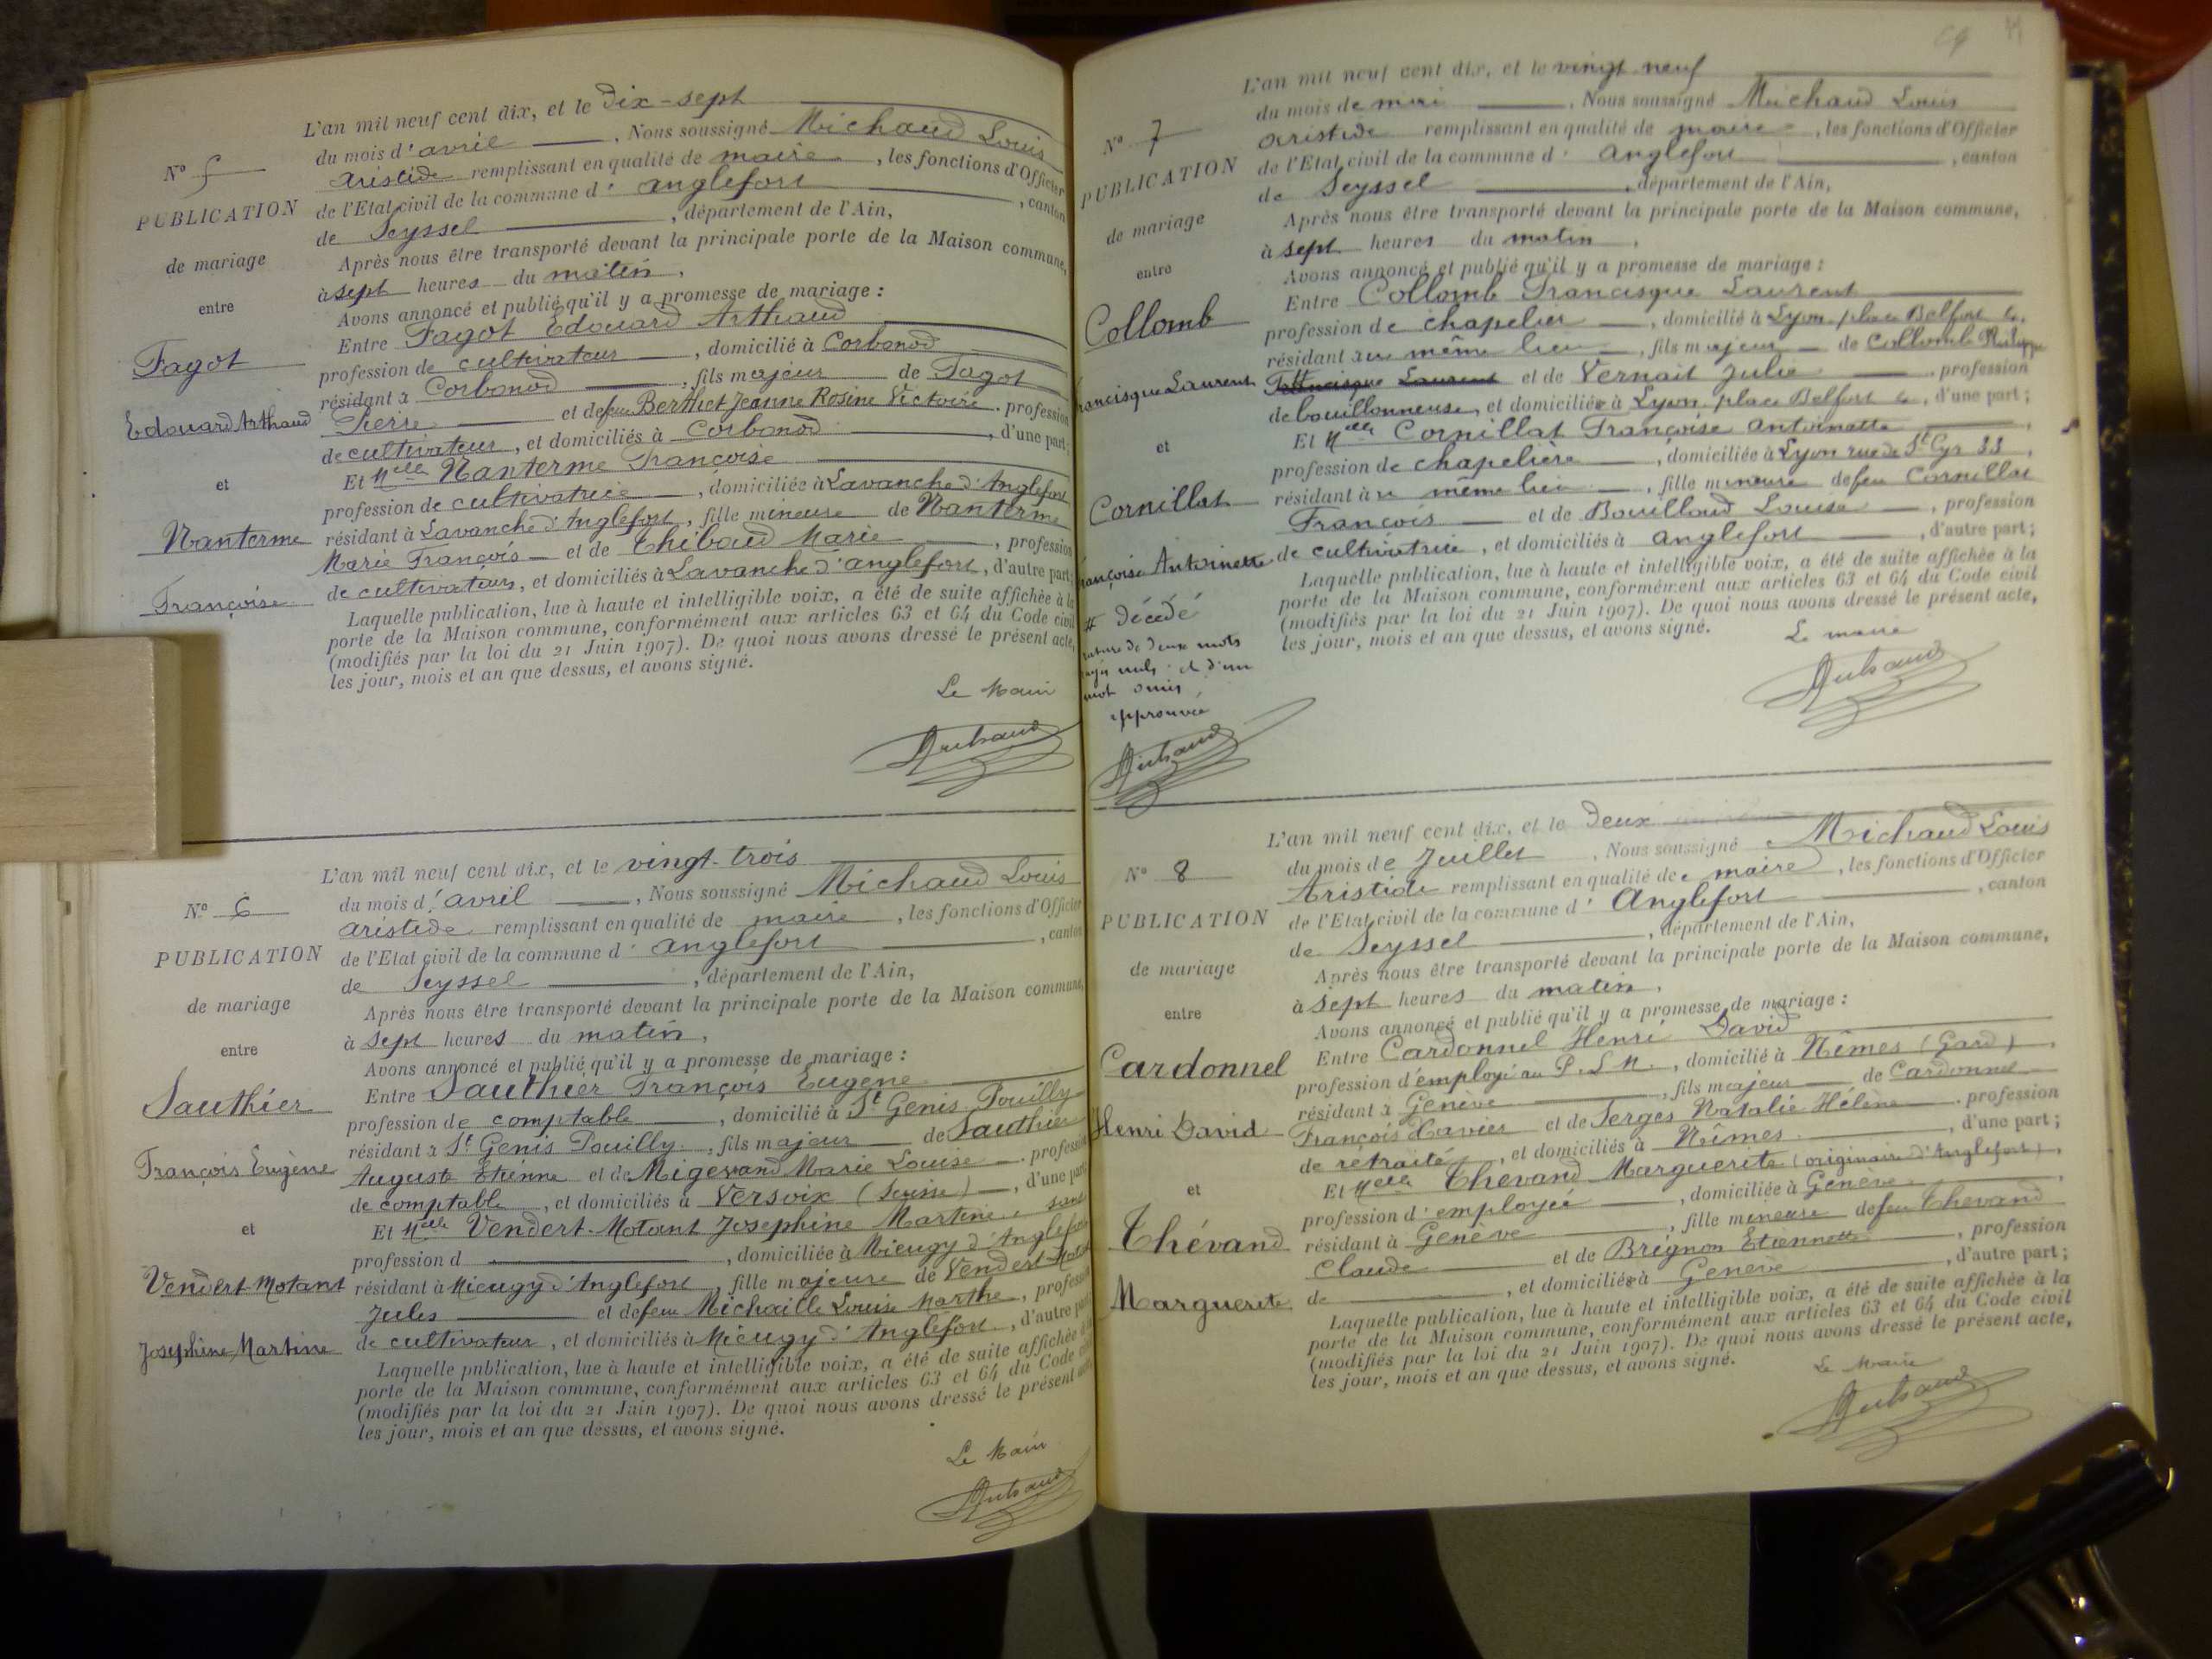 L'an mil neuf cent dix, et le dix-sept
du mois d'avril, Nous soussigné Michaud Louis
Aristide remplissant en qualité de maire, les fonctions d'Officier
de l'Etat civil de la commune d'Anglefort, canton
de Seyssel, département de l'Ain,
Après nous être transporté devant la principale porte de la Maison commune,
à sept heures du matin,
Avons annoncé et publié qu'il y a promesse de mariage :
Entre Fagot Edouard Arthaud
profession de cultivateur, domicilié à Corbonod
résidant à Corbonod, fils majeur de Fagot
Pierre et de feu Berthet Jeanne Rosine Victoire, profession
de cultivateur, et domiciliés à Corbonod, d'une part;
Et Melle Nanterme Françoise
profession de cultivatrice, domiciliée à Lavanche d'Anglefort
résidant à Lavanche d'Anglefort, fille mineure de Nanterme
Marie François et de Thibaud Marie, profession
de cultivateurs, et domiciliés à Lavanche d'Anglefort, d'autre part;
Laquelle publication, lue à haute et intelligible voix, a été de suite affichée à la
porte de la Maison commune, conformément aux articles 63 et 64 du Code civil
(modifiés par la loi du 21 Juin 1907). De quoi nous avons dressé le présent acte,
les jour, mois et an que dessus, et avons signé.
Le Maire
No 5
PUBLICATION
de mariage
entre
Fagot
Edouard Arthaud
et
Nanterme
Françoise
L'an mil neuf cent dix, et le vingt-trois
du mois d'avril, Nous soussigné Michaud Louis
Aristide remplissant en qualité de maire, les fonctions d'Officier
de l'Etat civil de la commune d'Anglefort, canton
de Seyssel, département de l'Ain,
Après nous être transporté devant la principale porte de la Maison commune,
à sept heures du matin,
Avons annoncé et publié qu'il y a promesse de mariage :
Entre Sauthier François Eugène
profession de comptable, domicilié à St Genis Pouilly
résidant à St Genis Pouilly, fils majeur de Sauthier
Auguste Etienne et de Migevand Marie Louise, profession
de comptable, et domiciliés à Versoix (Suisse), d'une part
Et Melle Vendert-Motant Josephine Martine, sans
profession d, domiciliée à Mieugy d'Anglefort
résidant à Mieugy d'Anglefort, fille majeure de Vendert-Motant
Jules et de feu Michaille Louise Marthe, profession
de cultivateur, et domiciliés à Mieugy d'Anglefort, d'autre part
Laquelle publication, lue à haute et intelligible voix, a été de suite affichée à la
porte de la Maison commune, conformément aux articles 63 et 64 du Code civil
(modifiés par la loi du 21 Juin 1907). De quoi nous avons dressé le présent acte,
les jour, mois et an que dessus, et avons signé.
Le Maire
No 6
PUBLICATION
de mariage
entre
Sauthier
François Eugène
et
Vendert-Motant
Josephine Martine
L'an mil neuf cent dix, et le vingt neuf
du mois de mai, Nous soussigné Michaud Louis
Aristide remplissant en qualité de maire, les fonctions d'Officier
de l'Etat civil de la commune d'Anglefort, canton
de Seyssel, département de l'Ain,
Après nous être transporté devant la principale porte de la Maison commune,
à sept heures du matin,
Avons annoncé et publié qu'il y a promesse de mariage :
Entre Collomb Francisque Laurent
profession de chapelier, domicilié à Lyon place Belfort 6,
résidant au même lieu, fils majeur de Collomb Philippe
Francisque Laurent et de Vernait Julie, profession
de bouillonneuse, et domiciliée à Lyon, place Belfort 6, d'une part;
Et Melle Cornillat Françoise Antoinette
profession de chapelière, domiciliée à Lyon rue de St Cyr 33,
résidant au même lieu, fille mineure de feu Cornillat
François et de Bouilloud Louise, profession
de cultivatrice, et domiciliés à Anglefort, d'autre part;
Laquelle publication, lue à haute et intelligible voix, a été de suite affichée à la
porte de la Maison commune, conformément aux articles 63 et 64 du Code civil
(modifiés par la loi du 21 Juin 1907). De quoi nous avons dressé le présent acte,
les jour, mois et an que dessus, et avons signé.
Le maire
No 7
PUBLICATION
de mariage
entre
Collomb
Francisque Laurent
et
Cornillat
Françoise Antoinette
# Décédé
rature de deux mots
rayés nuls et d'un
mot omis
approuvée
L'an mil neuf cent dix, et le deux
du mois de Juillet, Nous soussigné Michaud Louis
Aristide remplissant en qualité de maire, les fonctions d'Officier
de l'Etat civil de la commune d'Anglefort, canton
de Seyssel, département de l'Ain,
Après nous être transporté devant la principale porte de la Maison commune,
à sept heures du matin,
Avons annoncé et publié qu'il y a promesse de mariage :
Entre Cardonnel Henri David
profession d'employé au P.L.M., domicilié à Nîmes (Gard),
résidant à Genève, fils majeur de Cardonnel
François Xavier et de Serges Natalie Hélène, profession
de retraité, et domiciliés à Nîmes, d'une part;
Et Melle Thevand Marguerite (originaire d'Anglefort),
profession d'employée, domiciliée à Genève,
résidant à Genève, fille mineure de feu Thevand
Claude et de Brignon Etiennette, profession
de, et domiciliée à Genève, d'autre part;
Laquelle publication, lue à haute et intelligible voix, a été de suite affichée à la
porte de la Maison commune, conformément aux articles 63 et 64 du Code civil
(modifiés par la loi du 21 Juin 1907). De quoi nous avons dressé le présent acte,
les jour, mois et an que dessus, et avons signé.
Le Maire
No 8
PUBLICATION
de mariage
entre
Cardonnel
Henri David
et
Thévand
Marguerite